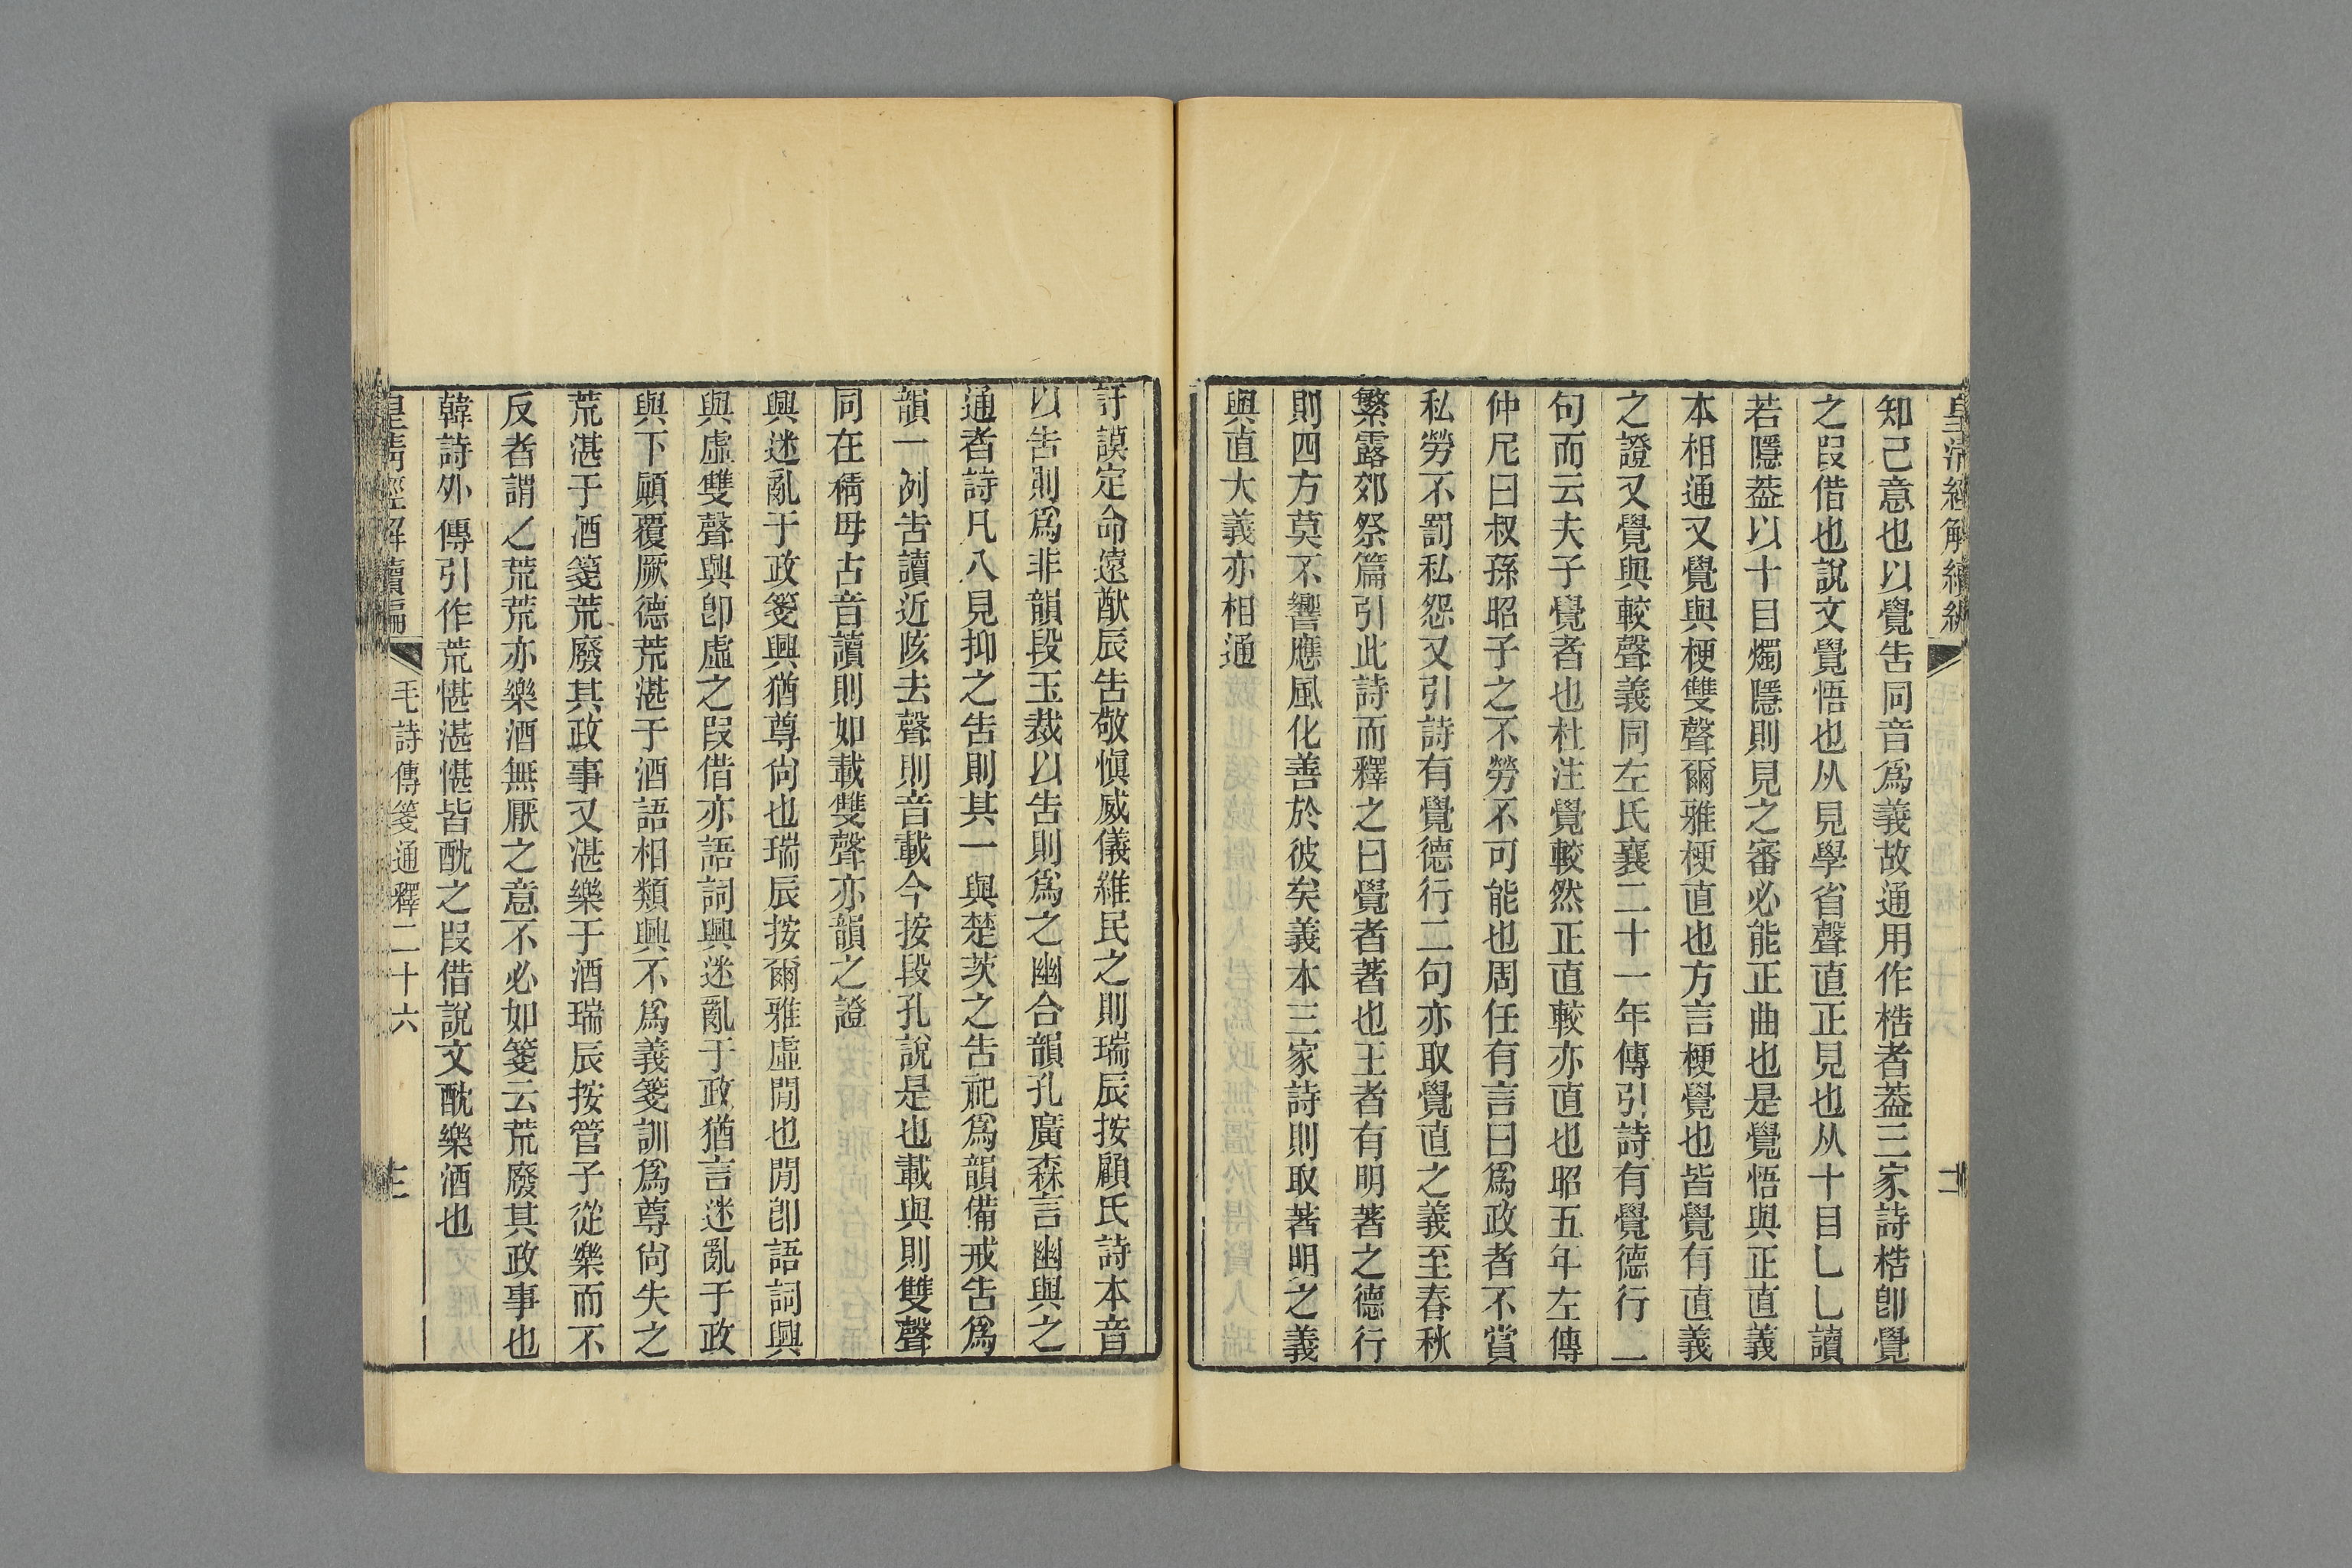 皇清經解續編
知己意也以覺告同音爲義故通用作梏者葢三家詩梏卽覺
之叚借也說文覺悟也从見學省聲直正見也从十目乚乚讀
若隱葢以十目燭隱則見之審必能正曲也是覺悟與正直義
本相通又覺與梗雙聲爾雅梗直也方言梗覺也皆覺有直義
之證又覺與較聲義同左氏襄二十一年傳引詩有覺德行二
句而云夫子覺者也杜注覺較然正直較亦直也昭五年左傳
仲尼曰叔孫昭子之不勞不可能也周任有言曰爲政者不賞
私勞不罰私怨又引詩有覺德行二句亦取覺直之義至春秋
繁露郊祭篇引此詩而釋之曰覺者著也王者有明著之德行
則四方莫不響應風化善於彼矣義本三家詩則取著明之義
與直大義亦相通
訏謨定命遠猷辰告敬愼威儀維民之則瑞辰按顧氏詩本音
以告則爲非韻段玉裁以告則爲之幽合韻孔廣森言幽與之
通者詩凡八見抑之告則其一與楚茨之告祀爲韻備戒告爲
韻一例告讀近陔去聲則音載今按段孔說是也載與則雙聲
同在精母古音讀則如載雙聲亦韻之證
興迷亂于政箋興猶尊尙也瑞辰按爾雅虛閒也閒卽語詞興
與虛雙聲興卽虛之叚借亦語詞興迷亂于政猶言迷亂于政
與下顚覆厥德荒湛于酒語相類興不爲義箋訓爲尊尙失之
荒湛于酒箋荒廢其政事又湛樂于酒瑞辰按管子從樂而不
反者謂之荒荒亦樂酒無厭之意不必如箋云荒廢其政事也
韓詩外傳引作荒愖湛愖皆酖之叚借說文酖樂酒也
皇清經解續編 毛詩傳箋通釋二十六